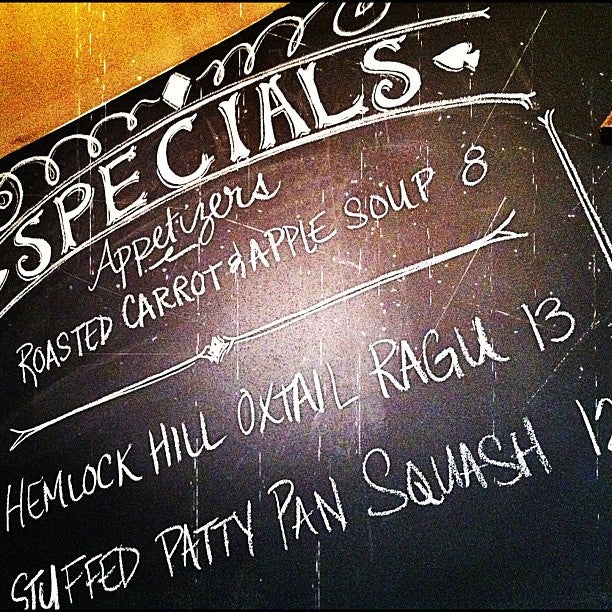 SPECIALS
Appetizers
ROASTED CARROT & APPLE SOUP 8
HEMLOCK HILL OXTAIL RAGU 13
STUFFED PATTY PAN SQUASH 12